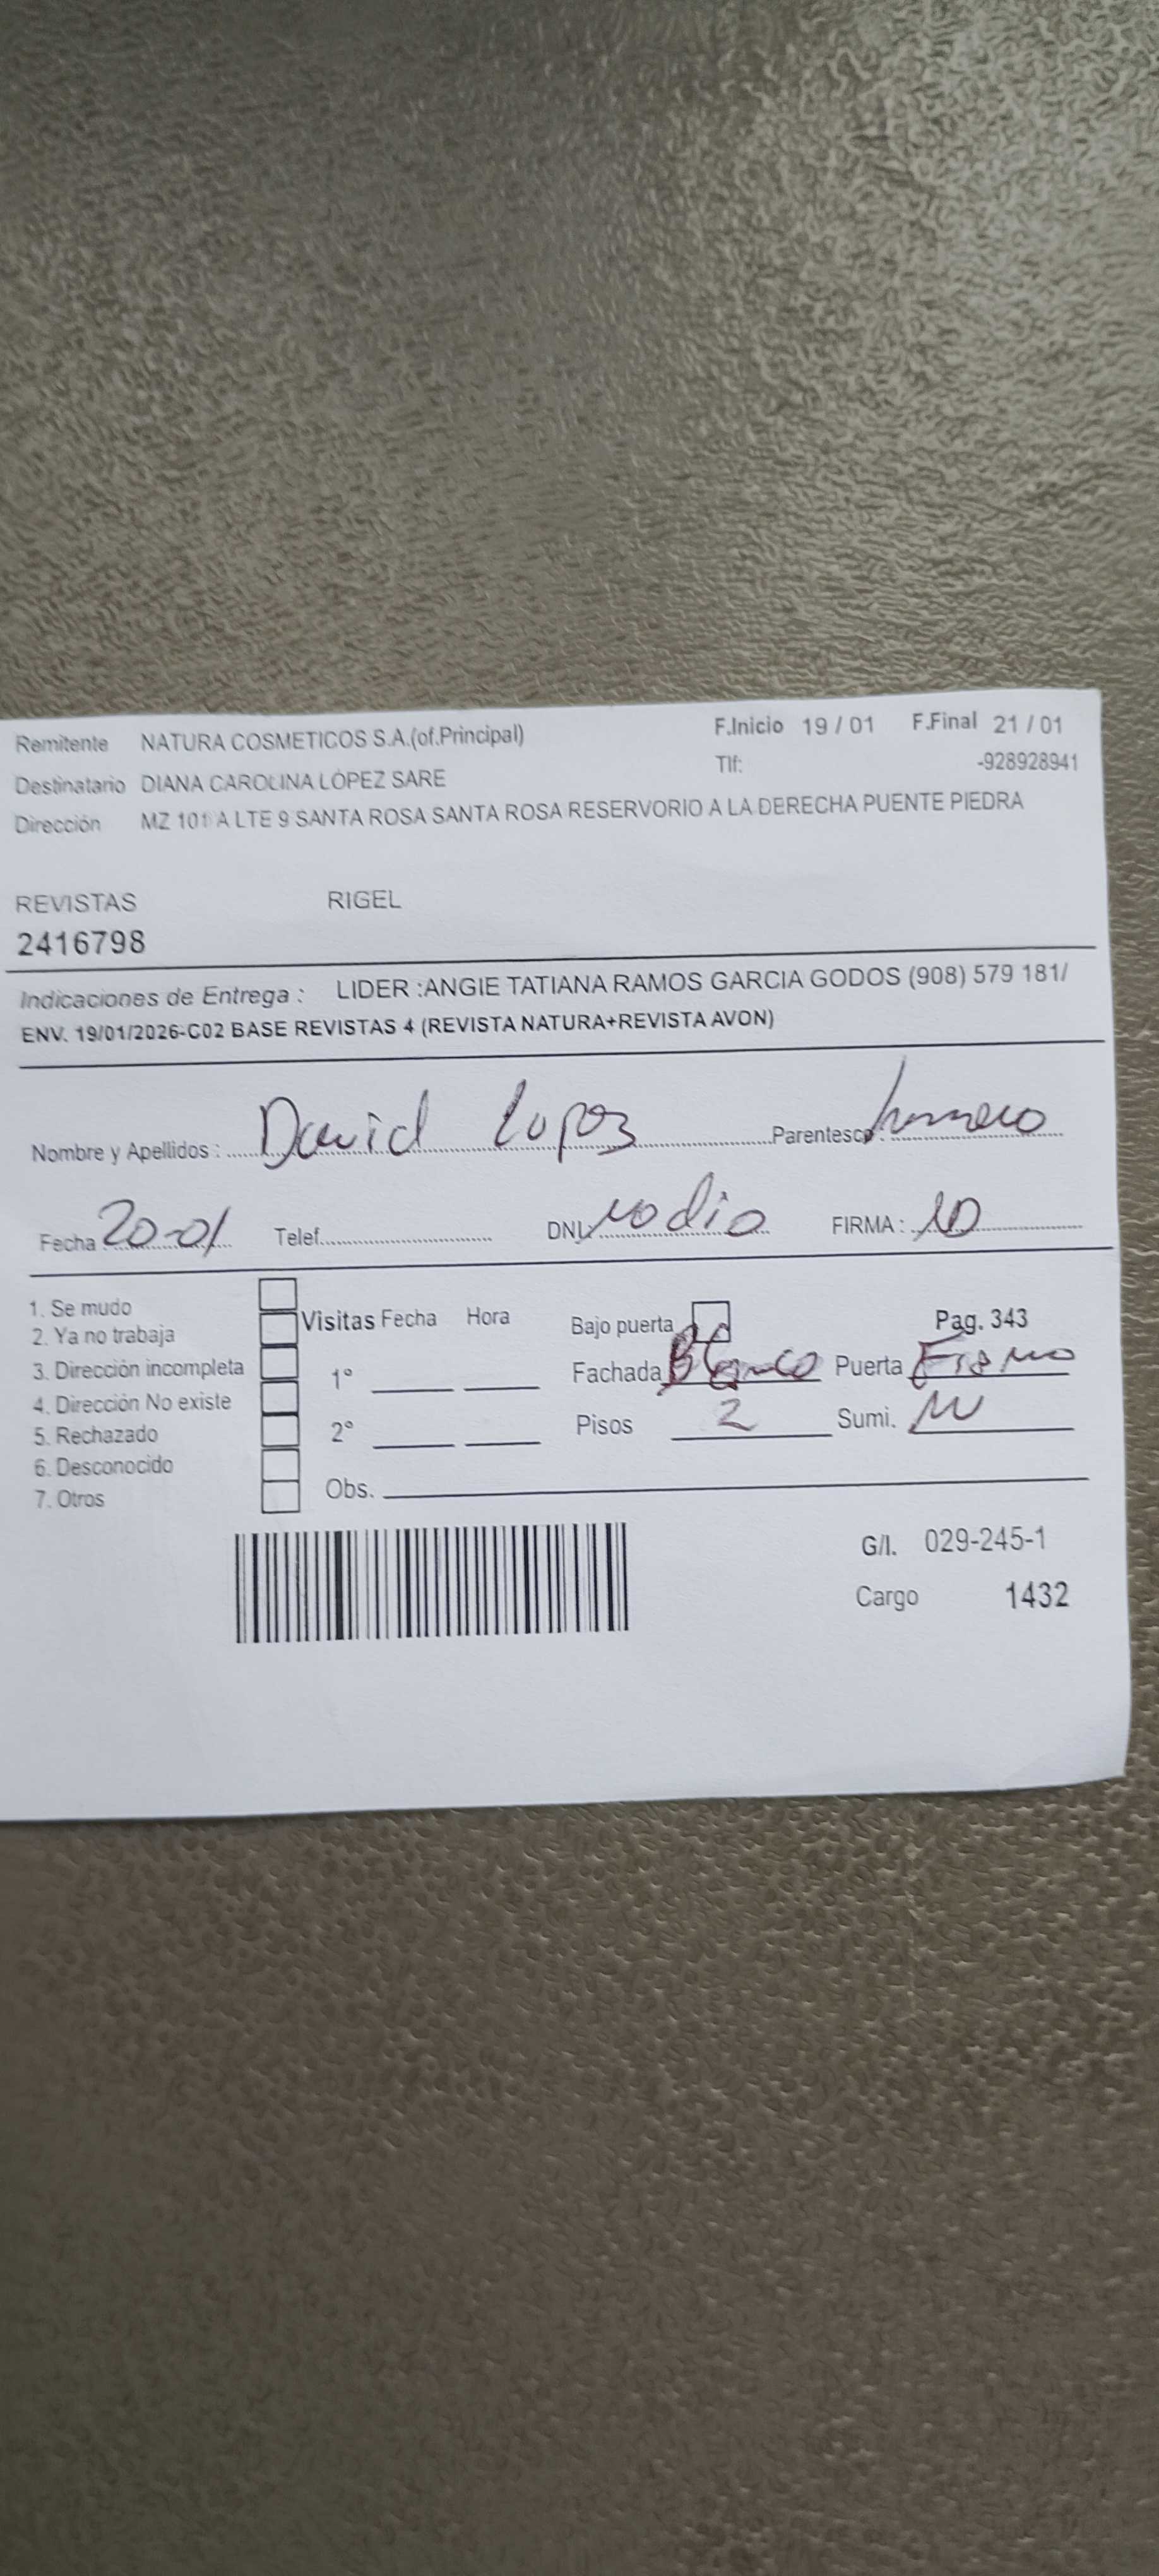 Remitente NATURA COSMETICOS S.A.(of.Principal) F.Inicio 19 / 01 F.Final 21 / 01
Destinatario DIANA CAROLINA LÓPEZ SARE Tlf: -928928941
Dirección MZ 101 A LTE 9 SANTA ROSA SANTA ROSA RESERVORIO A LA DERECHA PUENTE PIEDRA
REVISTAS RIGEL
2416798
Indicaciones de Entrega : LIDER :ANGIE TATIANA RAMOS GARCIA GODOS (908) 579 181/
ENV. 19/01/2026-C02 BASE REVISTAS 4 (REVISTA NATURA+REVISTA AVON)
Nombre y Apellidos : David Lopez Parentesco :
Fecha : 20-01 Telef. DNI: no dio FIRMA :
1. Se mudo
2. Ya no trabaja Visitas Fecha Hora Bajo puerta Pag. 343
3. Dirección incompleta 1° Fachada Blanco Puerta Fierro
4. Dirección No existe
5. Rechazado 2° Pisos 2 Sumi.
6. Desconocido
7. Otros Obs.
G/I. 029-245-1
Cargo 1432